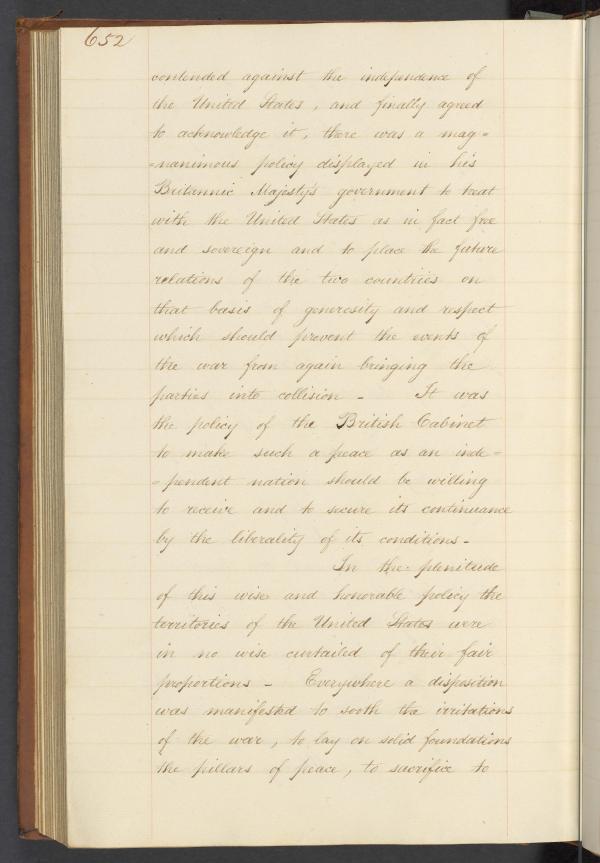 652
contended against the independence of
the United States, and finally agreed
to acknowledge it, there was a mag=
=nanimous policy displayed in his
Britannic Majesty's government to treat
with the United States as in fact free
and sovereign and to place the future
relations of the two countries on
that basis of generosity and respect
which should prevent the events of
the war from again bringing the
parties into collision - It was
the policy of the British Cabinet
to make such a peace as an inde=
=pendent nation should be willing
to receive and to secure its continuance
by the liberality of its conditions -
In the plenitude
of this wise and honorable policy the
territories of the United States were
in no wise curtailed of their fair
proportions - Everywhere a disposition
was manifested to sooth the irritations
of the war, to lay on solid foundations
the pillars of peace, to sacrifice to